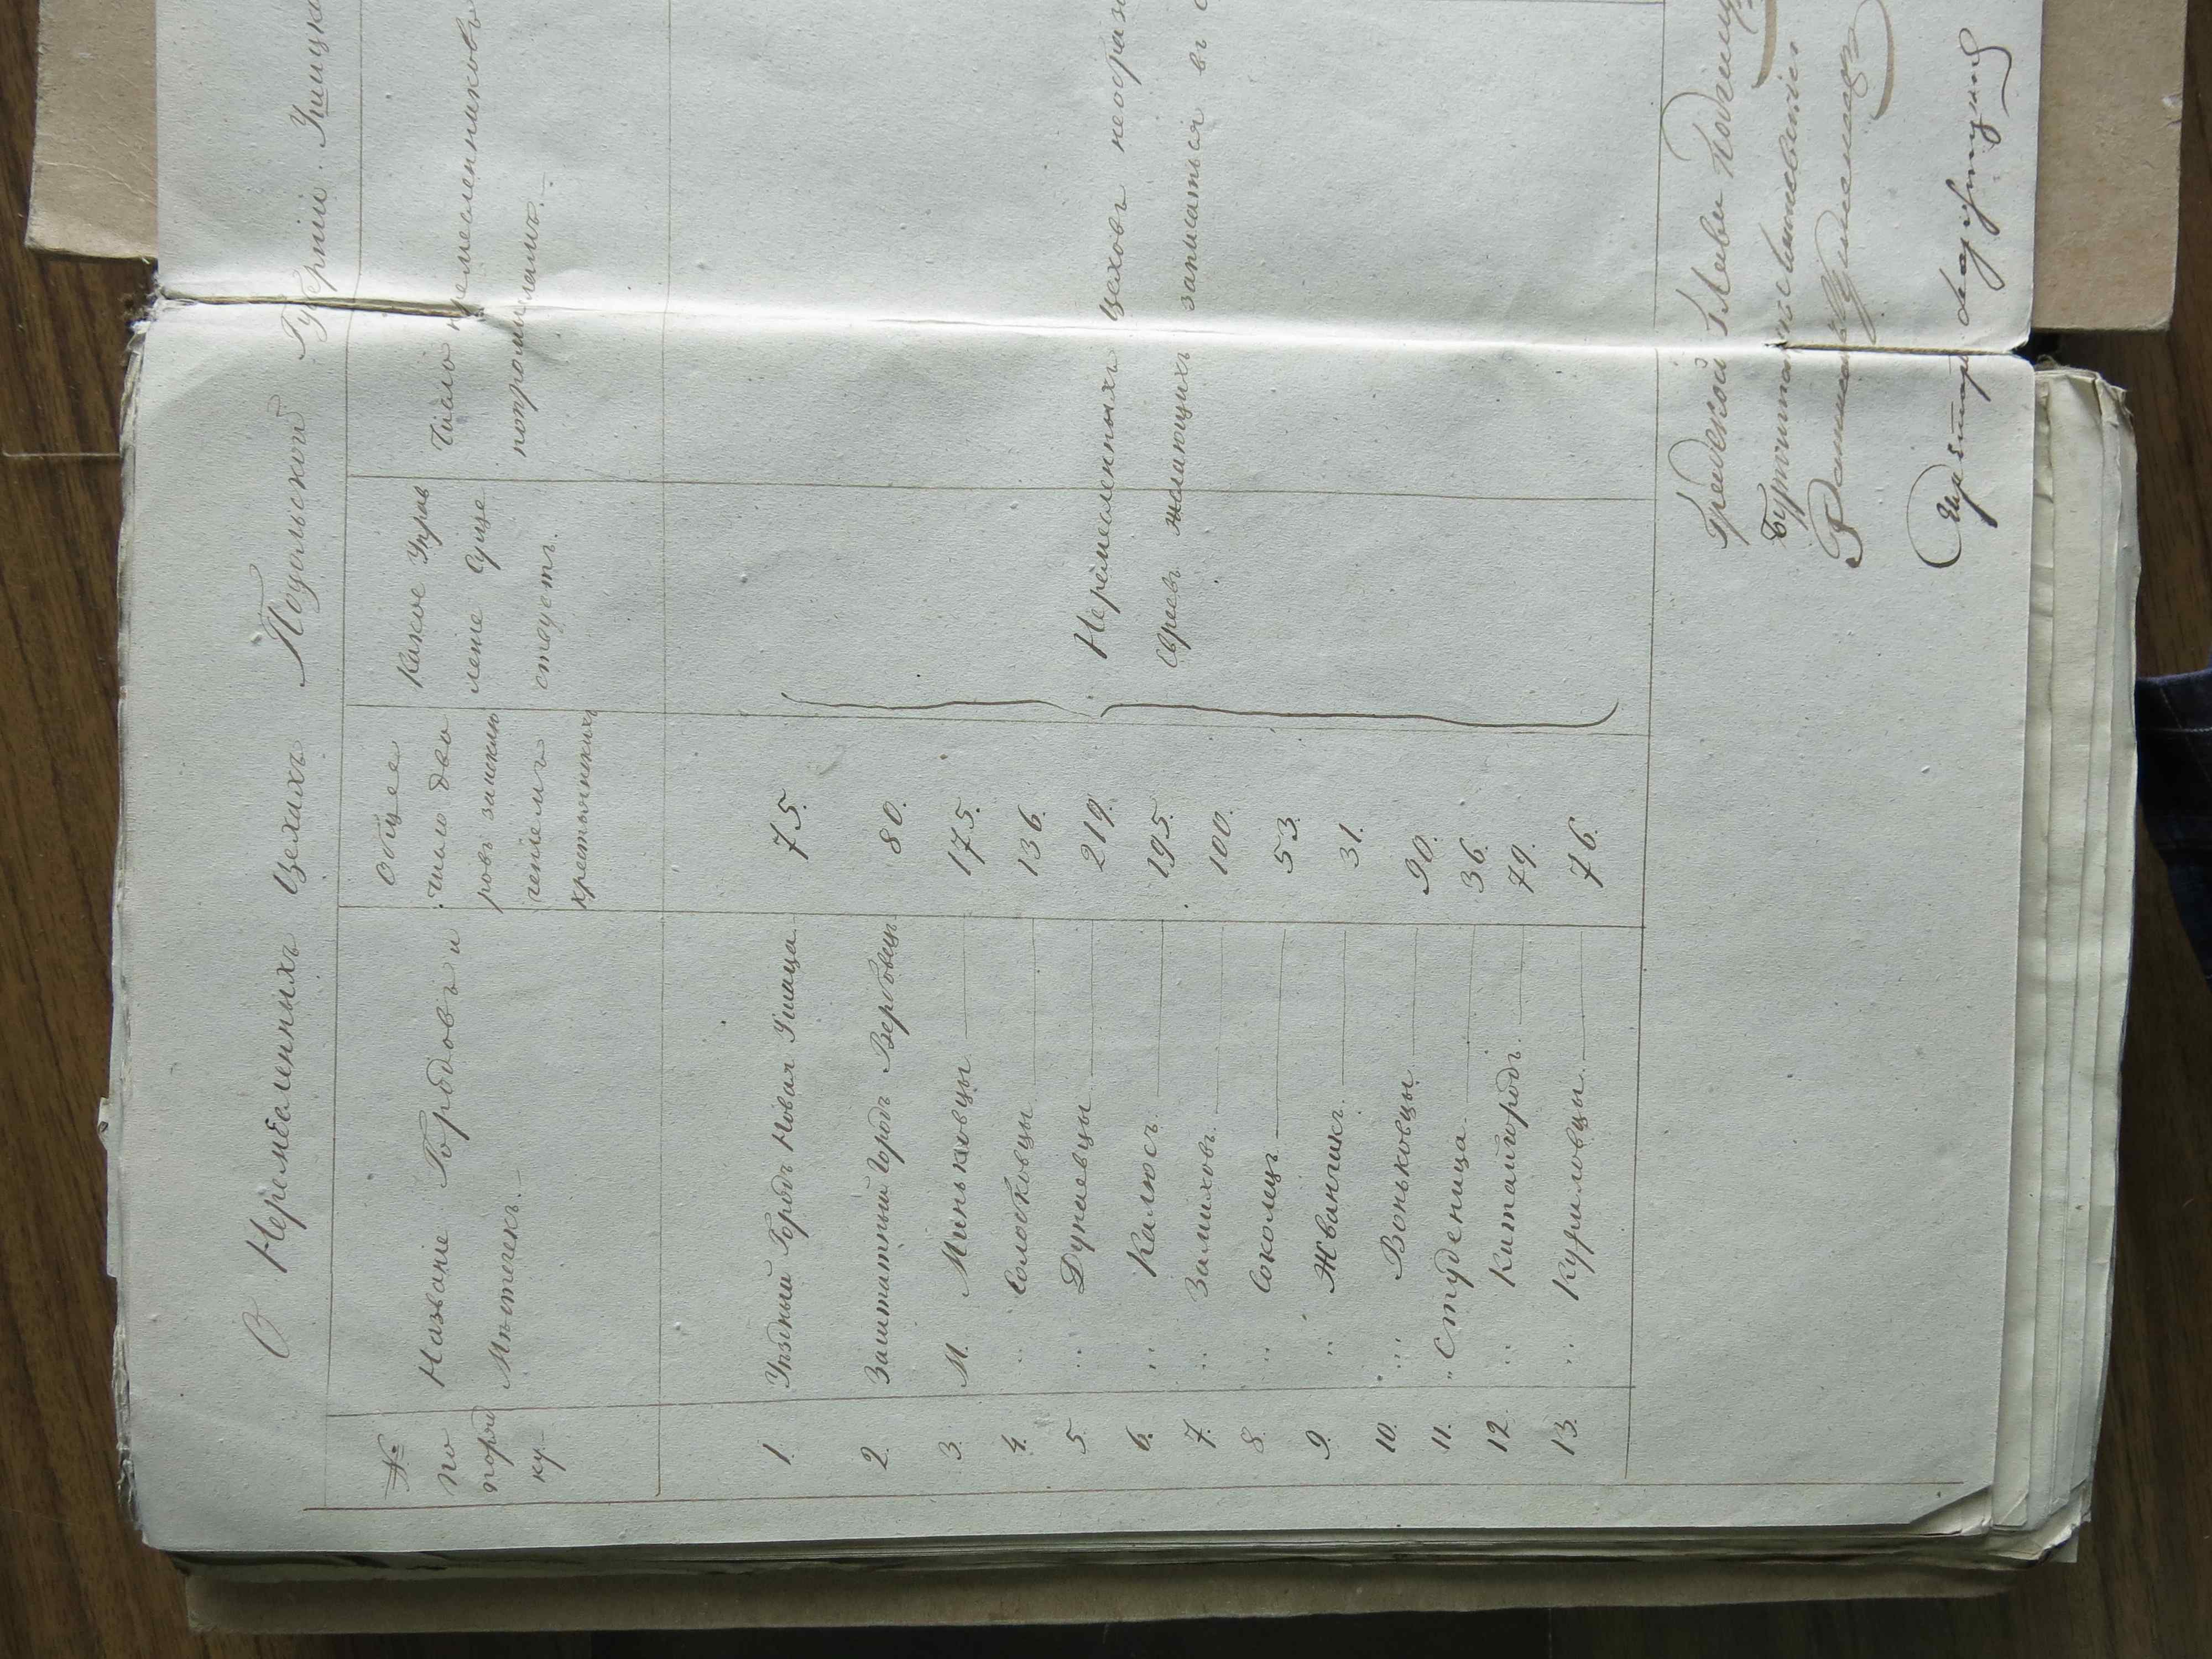 О Неремесленныхъ Цехахъ Подольской Губерніи Ушицка
№ по поряд ку.
Названіе Городовъ и Мѣстечекъ.
Общее число дво ровъ заисклю ченіемъ крестьянскихъ
Какое Управ леніе суще ствуетъ.
Число неремесленниковъ попромысламъ.
1. Уѣздный Городъ Новая Ушица 75.
2. Заштатный Городъ Вербовецъ 80.
3. М. Миньковцы 175.
4. " Солобковцы 136.
5. " Дунаевцы 219.
6. " Калюсъ 195.
7. " Замиховъ 100.
8. " Соколецъ 53.
9. " Жванчикъ 31.
10. " Воньковцы 90.
11. " Студеница 36.
12. " Китайгородъ 79.
13. " Куриловцы 76.
Неремесленныхъ Цеховъ необраз
Евреевъ желающихъ записаться въ
Градской Глава
Бургомистръ
Ратманъ
Секретарь